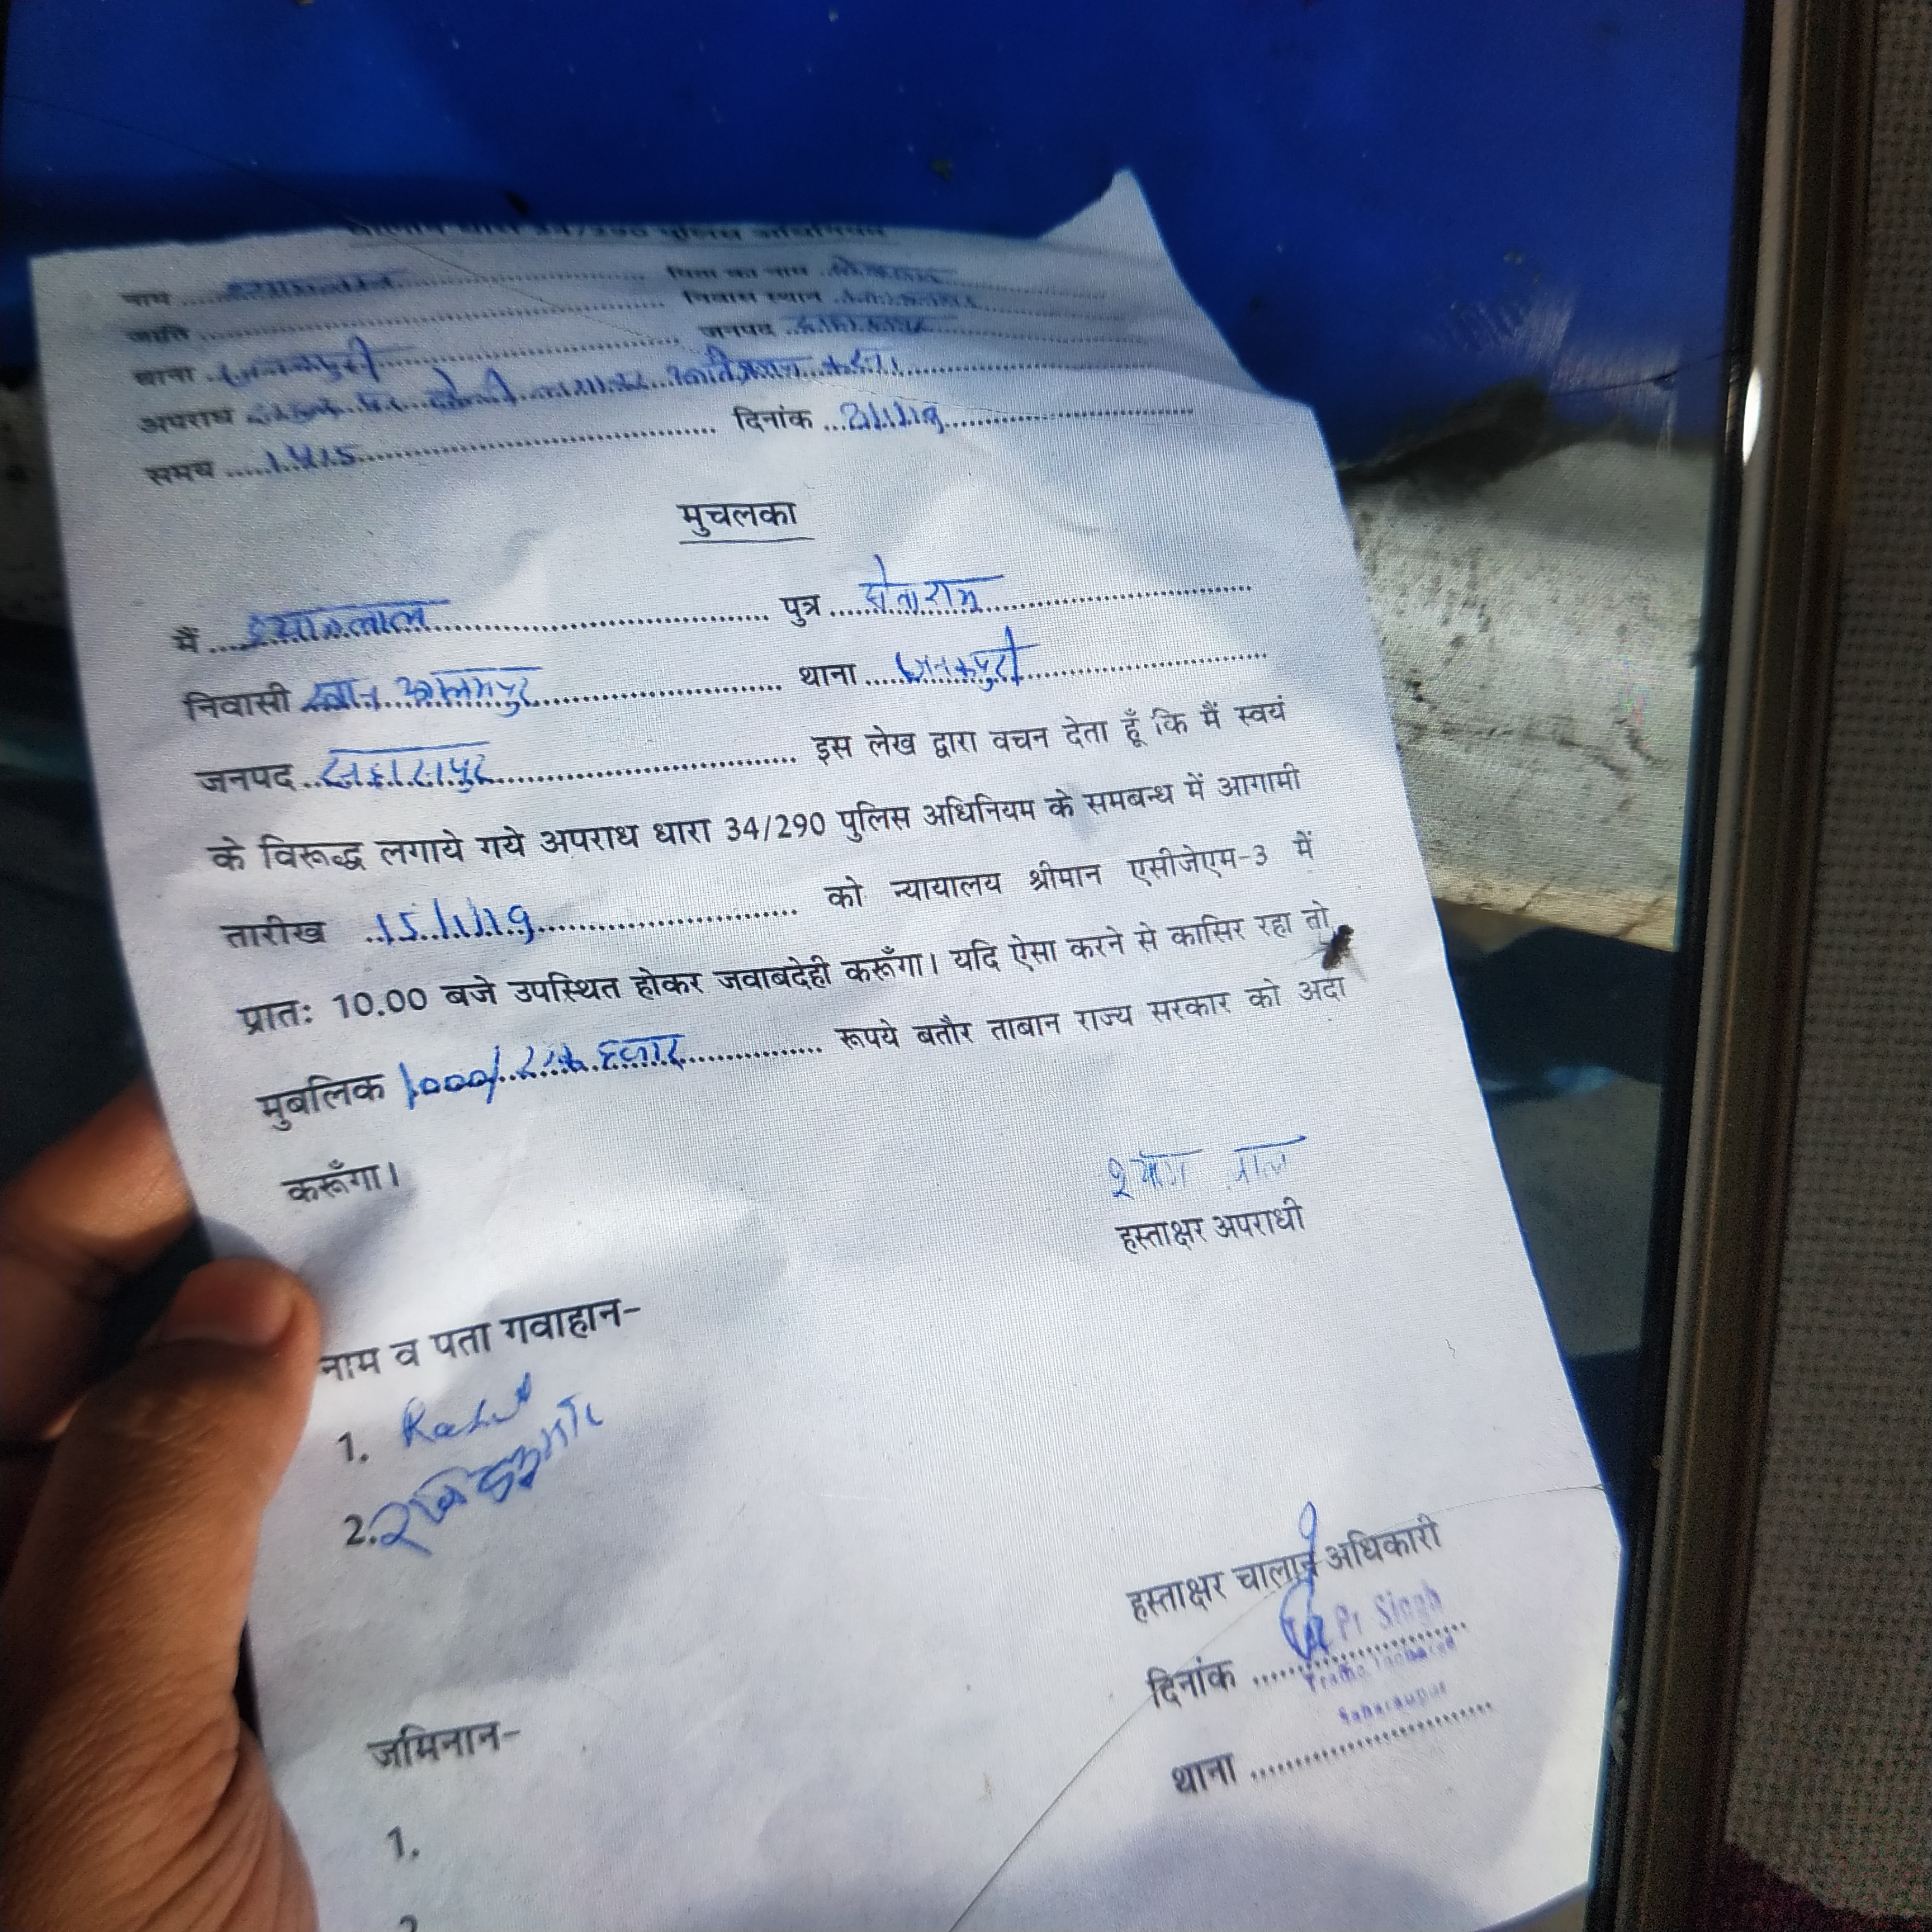 चालान धारा 34/290 पुलिस अधिनियम
नाम .......... पिता का नाम ..........
जाति .......... निवास स्थान ..........
थाना ..जनकपुरी.......... जनपद ..........
अपराध .......... पर .......... लगाकर .......... करना
समय .....1415.......... दिनांक ..........
मुचलका
मैं ...श्यामलाल.......... पुत्र ..........
निवासी .......... थाना .....जनकपुरी..........
जनपद ..सहारनपुर.......... इस लेख द्वारा वचन देता हूँ कि मैं स्वयं
के विरूद्ध लगाये गये अपराध धारा 34/290 पुलिस अधिनियम के समबन्ध में आगामी
तारीख ..15/1/19.......... को न्यायालय श्रीमान एसीजेएम-3 में
प्रातः 10.00 बजे उपस्थित होकर जवाबदेही करूँगा। यदि ऐसा करने से कासिर रहा तो
मुबलिक 1000/ एक हजार .......... रूपये बतौर ताबान राज्य सरकार को अदा
करूँगा।
श्याम लाल
हस्ताक्षर अपराधी
नाम व पता गवाहान-
1. Rahul
2. रविकुमार
हस्ताक्षर चालान अधिकारी
Singh
दिनांक ..........
Traffic
Saharanpur
थाना ..........
जमिनान-
1.